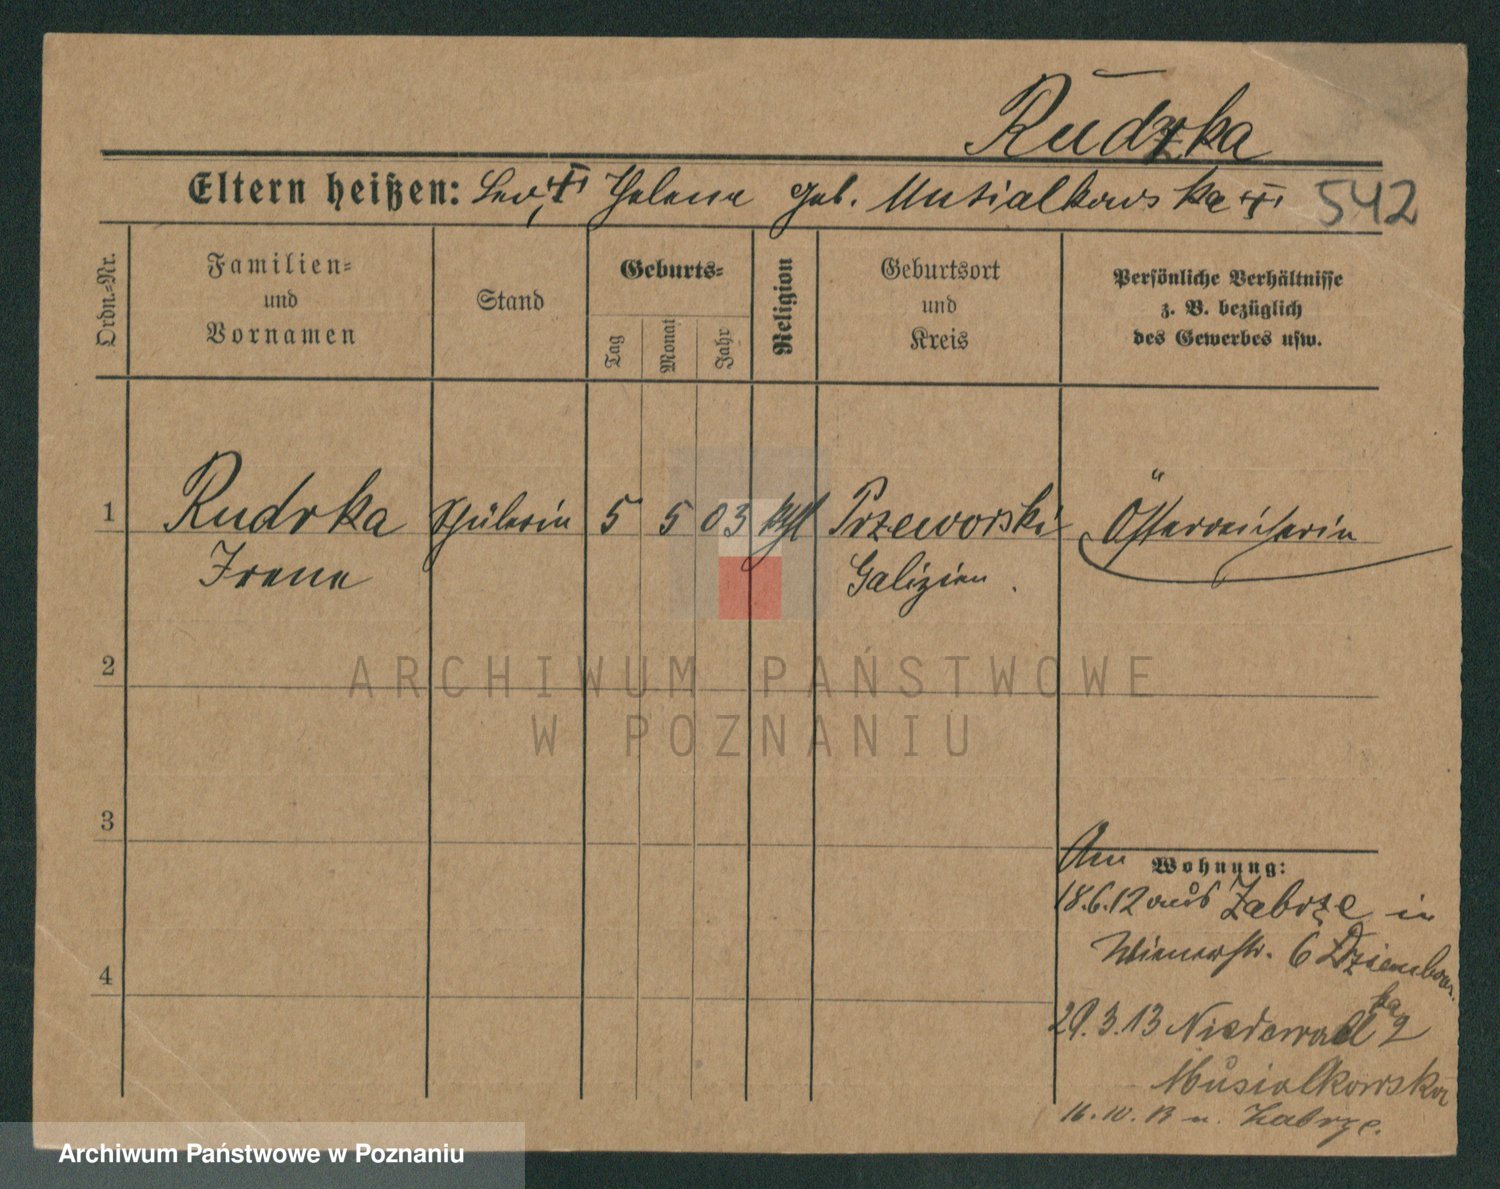 Rudzka
Eltern heißen: Leo, Helene geb. Musialkowska 542
Ordn.-Nr.
Familien-
und
Vornamen
Stand
Geburts-
Tag
Monat
Jahr
Religion
Geburtsort
und
Kreis
Persönliche Verhältnisse
z. B. bezüglich
des Gewerbes usw.
1 Rudzka Schülerin 5 5 03 kthl Przeworski Österreicherin
Irene Galizien.
2
ARCHIWUM PAŃSTWOWE
W POZNANIU
3
Am Wohnung:
18.6.12 aus Zabrze in
Wienerstr. 6 Dziembows
ka
4
29.3.13 Niederwall 2
Musialkowska
16.10.13 n. Zabrze.
Archiwum Państwowe w Poznaniu